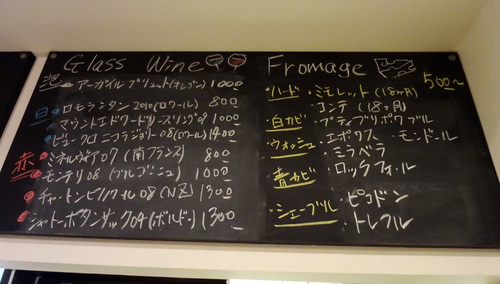 Glass Wine
泡 アーガイル ブリュット(オレゴン) 1000
白 ロモランタン 2010(ロワール) 800
マウントエドワードリースリング09 1000
ビュークロニコラジョリー08(ロワール) 1400
赤 ミネルヴォア07(南フランス) 800
モンテリ08(ブルゴーニュ) 1000
チャートンピノノワール08(NZ) 1300
シャトーボタンサック04(ボルドー) 1300
Fromage 500~
・ハード ・ミモレット(18ヶ月)
・コンテ(18ヶ月)
・白カビ ・プティブリ
・ウォッシュ ・エポワス ・モンドール
・ミラベラ
・青カビ ・ロックフォール
・シェーブル ・ピコドン
・トレフル